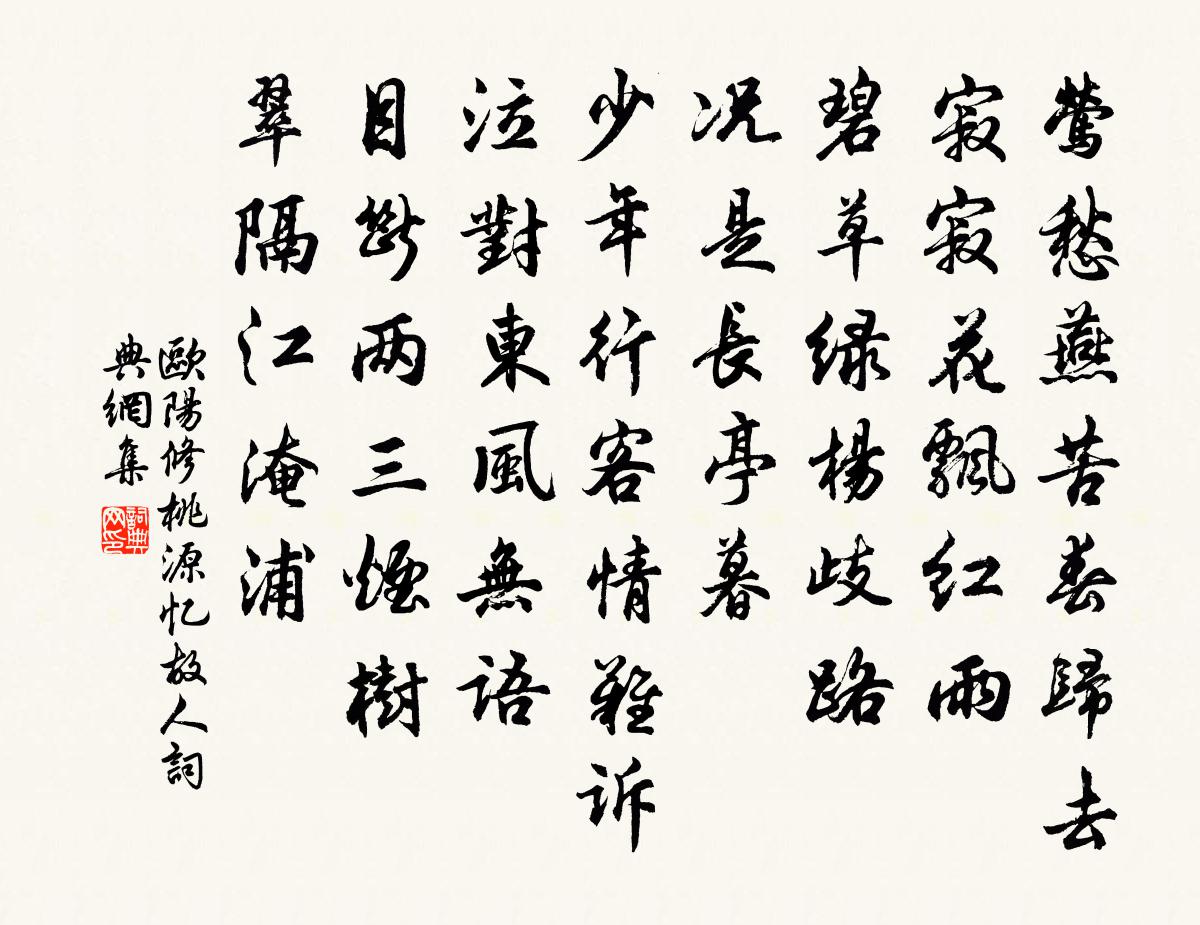 莺愁燕苦春歸去
寂寂花飄紅雨
碧草绿楊歧路
况是長亭暮
少年行客情難訴
泣對東風無語
目斷两三煙樹
翠隔江淹浦
歐陽修桃源忆故人詞
典網集
詞典网印